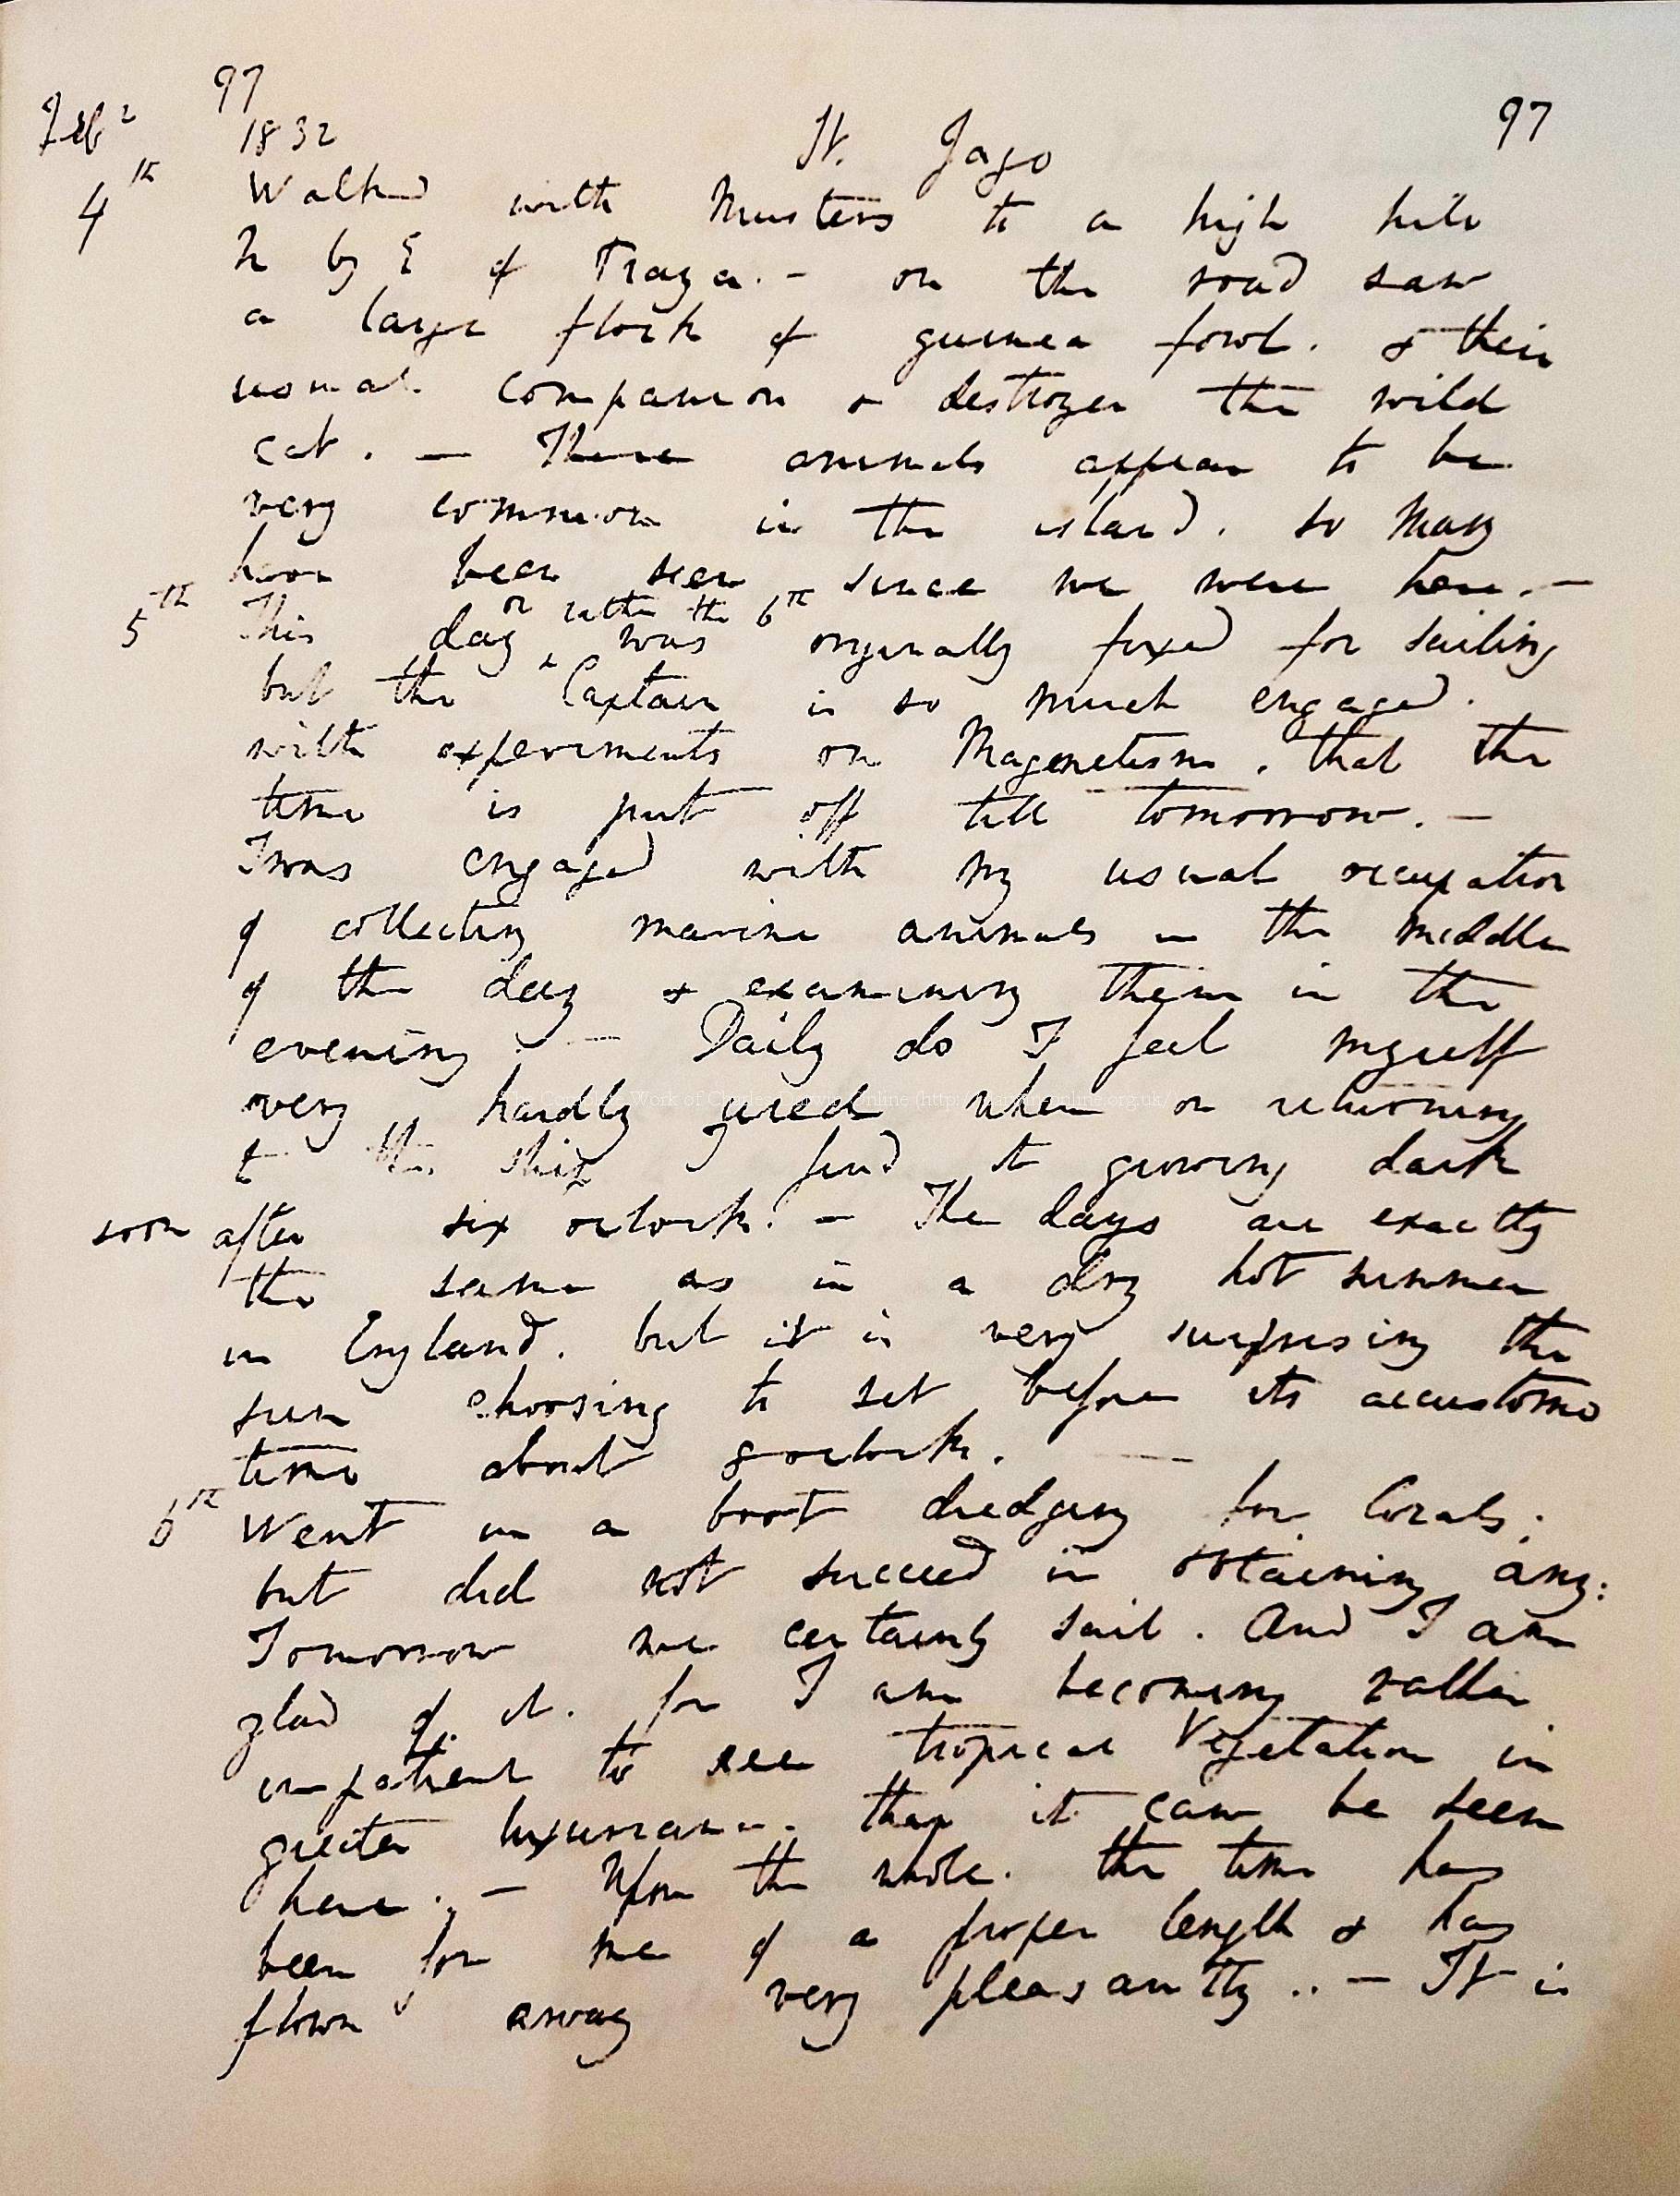 97
Feb 2
1832
St. Jago
97
4th Walked with Musters to a high hill
N by E of Praya. - on the road saw
a large flock of guinea fowl. & their
usual companion & destroyer the wild
cat. — These animals appear to be
very common in the island. so many
have been seen since we were here. —
or rather the 6th
5th This day ^ was originally fixed for sailing
but the Captain is so much engaged
with experiments on Magenetism, that the
time is put off till tomorrow. —
I was engaged with my usual occupation
of collecting marine animals in the middle
of the day & examining them in the
evening. — Daily do I feel myself
very hardly used when on returning
to the ship I find it growing dark
soon after six oclock. — The days are exactly
the same as in a dry hot summer
in England. but it is very surprising the
sun choosing to set before its accustomed
time about 8 oclock. —
6th Went in a boat dredging for Corals;
but did not succeed in obtaining any:
Tomorrow we certainly sail. And I am
glad of it. for I am becoming rather
impatient to see tropical Vegetation in
greater luxuriance than it can be seen
here. — Upon the whole. the time has
been for me of a proper length & has
flown away very pleasantly.. — It is